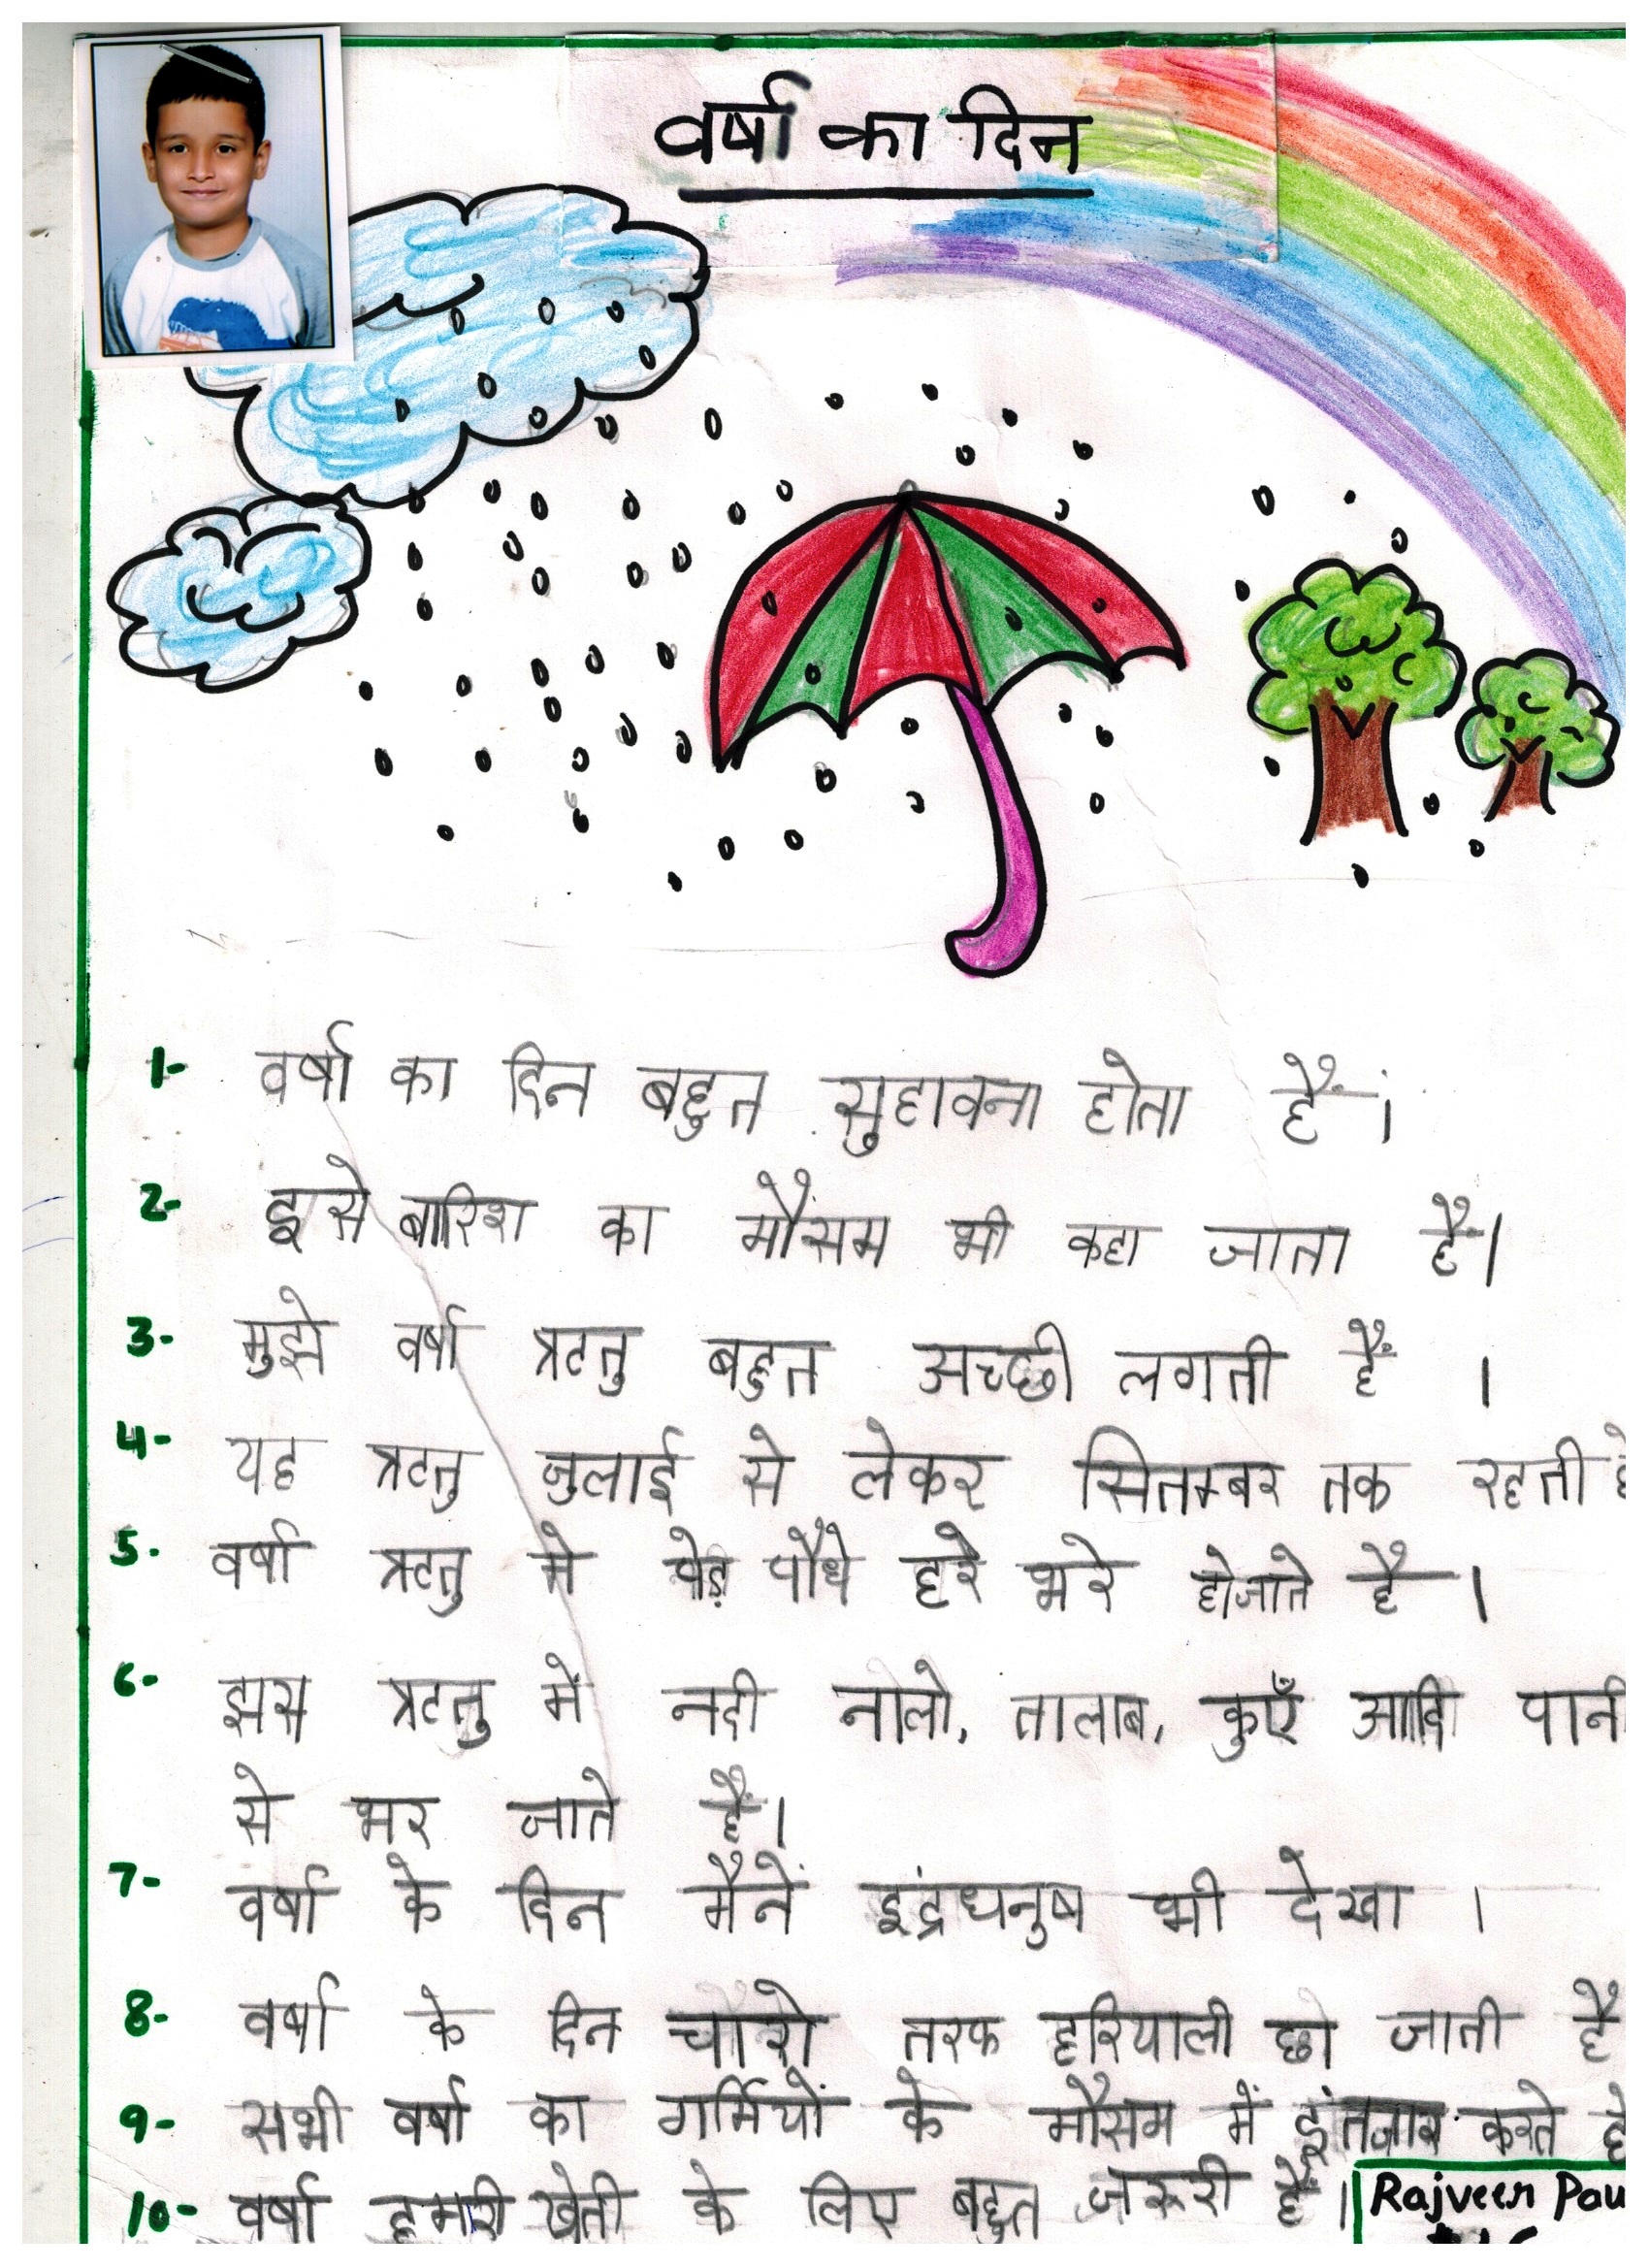 वर्षा का दिन
1- वर्षा का दिन बहुत सुहावना होता हैं।
2- इसे बारिश का मौसम भी कहा जाता है।
3- मुझे वर्षा ऋतु बहुत अच्छी लगती हैं ।
4- यह ऋतु जुलाई से लेकर सितम्बर तक रहती
5- वर्षा ऋतु मे पेड़ पौधे हरे भरे होजाते है ।
6- इस ऋतु में नदी नालो, तालाब, कुएँ आदि पानी
से भर जाते है।
7- वर्षा के दिन मैनें इंद्रधनुष भी देखा ।
8- वर्षा के दिन चारो तरफ हरियाली छा जाती है
9- सभी वर्षा का गर्मियों के मौसम में इंतजार करते
10- वर्षा हमारी खेती के लिए बहुत जरूरी हैं।
Rajveer Pau